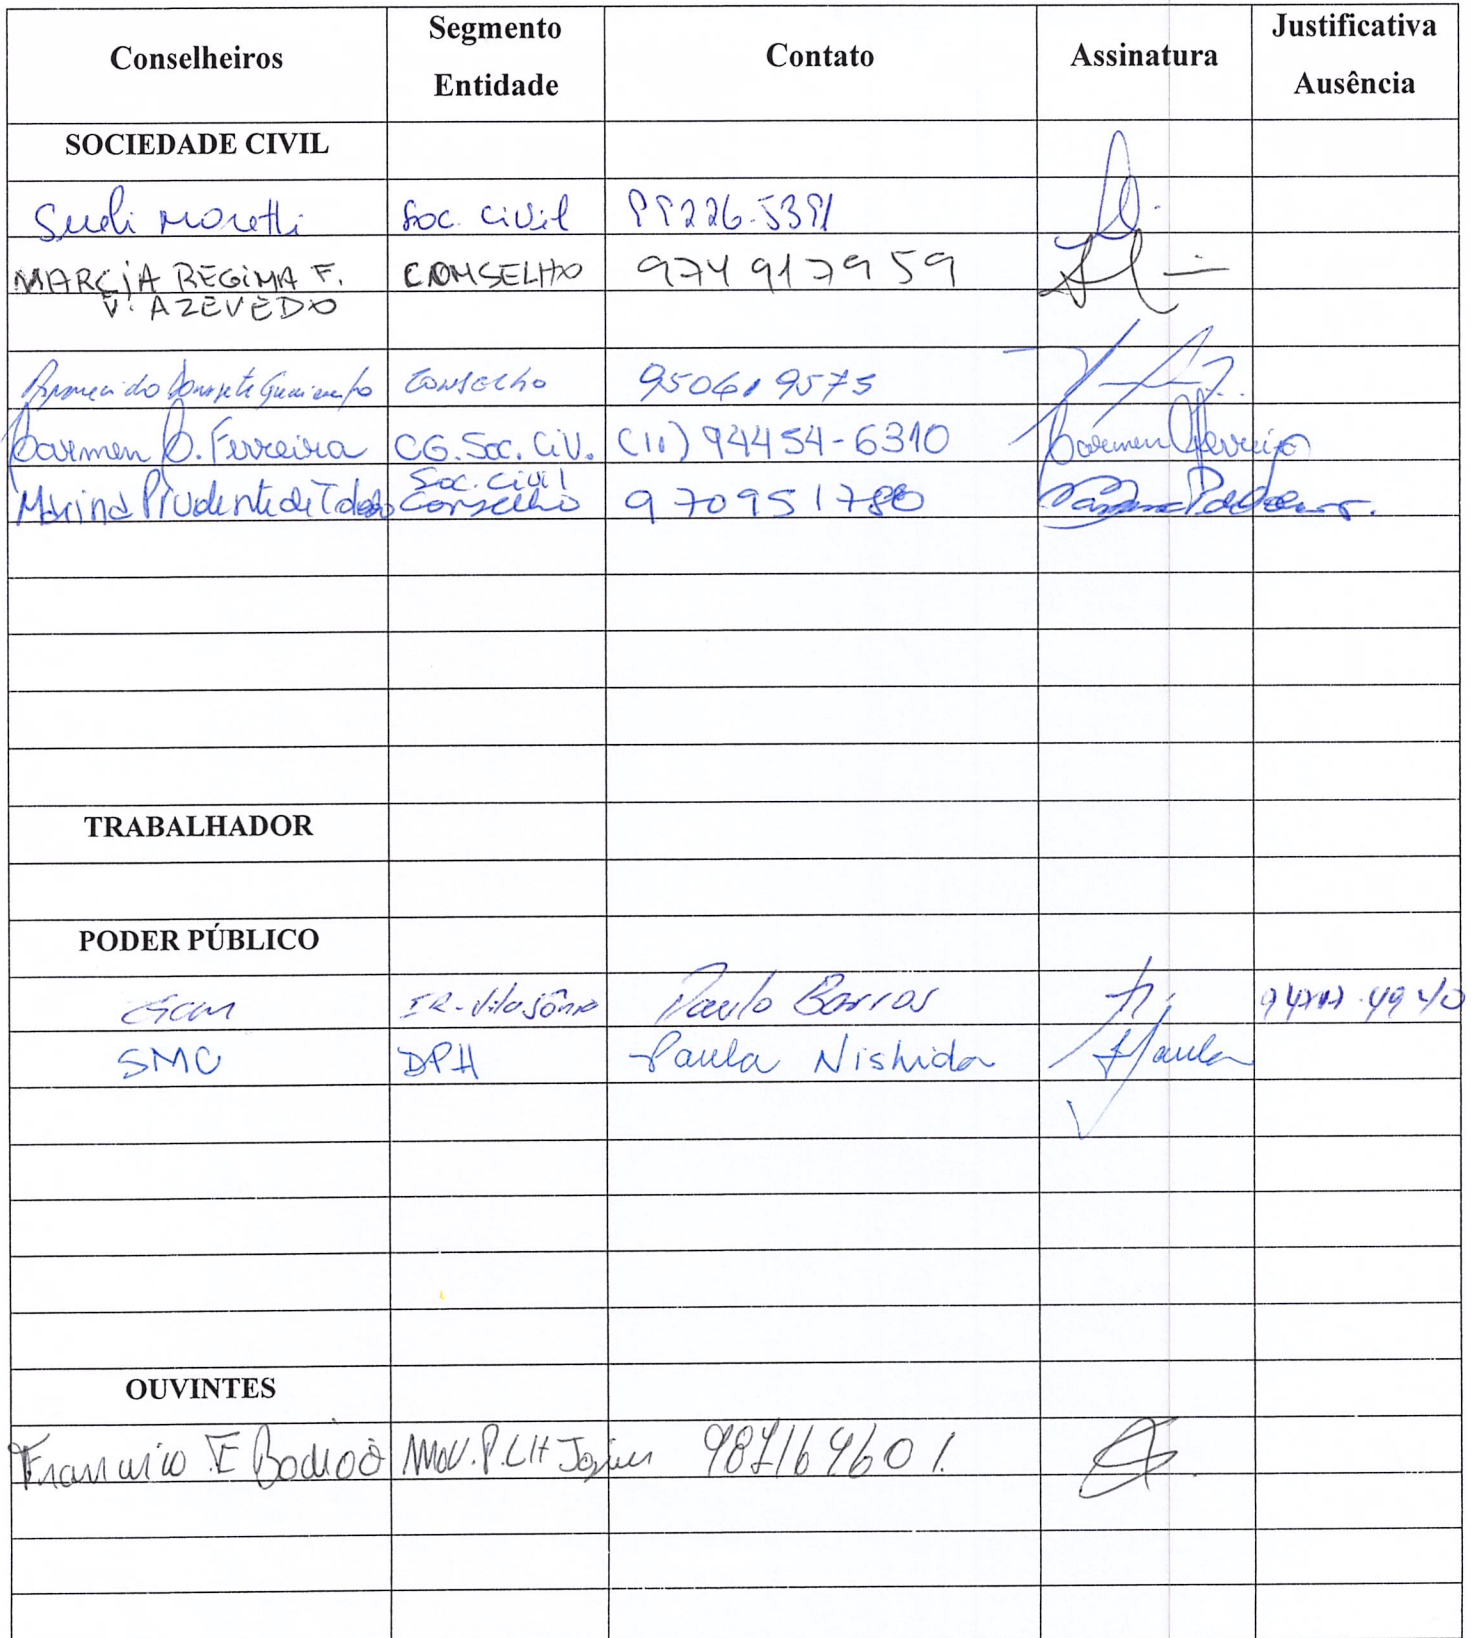 Conselheiros Segmento Entidade Contato Assinatura Justificativa Ausência
SOCIEDADE CIVIL
Sueli Moretti Soc. Civil 99226-5391
MARCIA REGINA F. CONSELHO 974917959
V. AZEVEDO
Conselho 950619575
Carmen D. Ferreira CG. Soc. Civ. (11) 94454-6310 Carmen Ferreira
Soc. Civil
Marina Prudente de Toledo Conselho 970951780
TRABALHADOR
PODER PÚBLICO
GCM IR-Vila Sônia Paulo Barros
SMC DPH Paula Nishida Paula
OUVINTES
Mov. P.